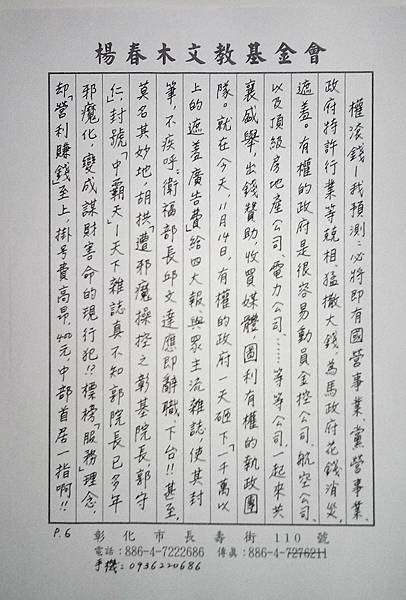 楊春木文教基金會
權滾錢—我預測:必將即有國營事業、黨營事業、
政府特許行業等競相猛撒大錢,為馬政府花錢消災,
遮羞。有權的政府是很容易動員金控公司、航空公司、
以及頂級房地產公司、電力公司、……等等公司,一起來共
襄盛舉,出錢贊助,收買媒體,圖利有權的執政團
隊。就在今天,11月14日,有權的政府一天砸下「一千萬以
上的遮羞廣告費」給四大報與眾主流雜誌,使其封
筆,不疾呼:衛福部長邱文達應即辭職、下台!!甚至,
莫名其妙地,胡拱「遭邪魔操控之彰基院長郭守
仁,封號「中霸天」—天下雜誌真不知郭院長已多年
邪魔化,變成謀財害命的現行犯!?標榜「服務」理念
却「營利賺錢」至上,掛号費高昂,400元中部首居一指啊!!
P.6
彰化市長壽街110號
電話:886-4-7222686 傳真:886-4-7276211
手機:0936220686